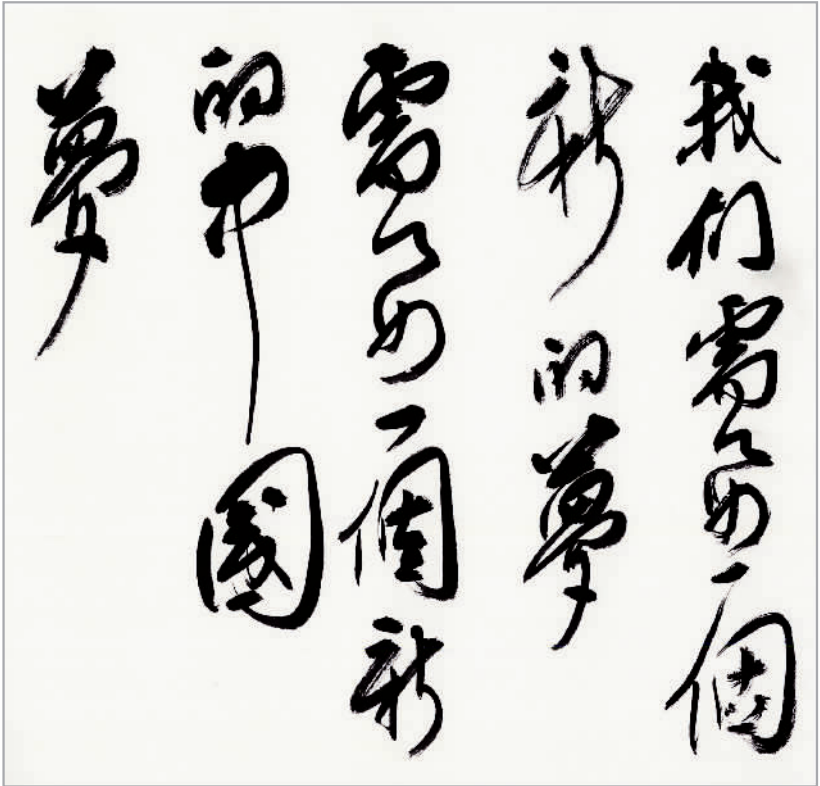 我们需要一個
新的夢
需要一個新
的中國
夢